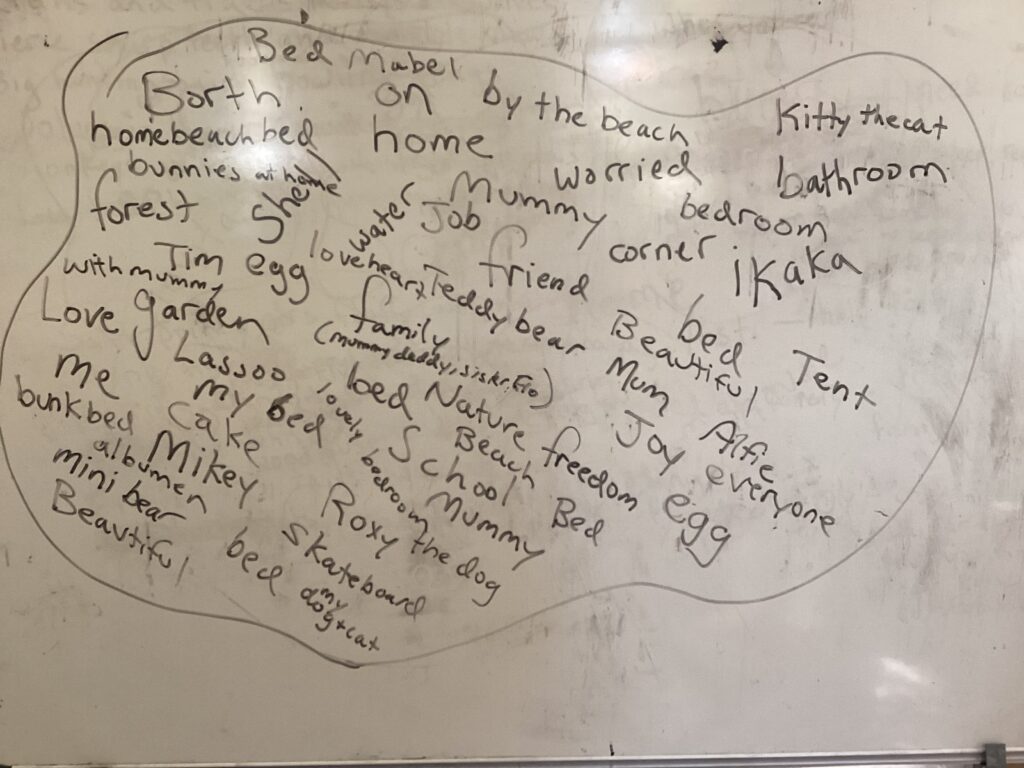 Bed Mabel
Borth on by the beach Kitty the cat
homebeachbed home
bunnies at home worried bathroom
forest shell water Mummy bedroom
Job corner
Tim egg loveheart friend iKaka
with mummy Teddy bear
Love garden family Beautiful bed Tent
(mummy, daddy, sister, Fio)
me Lassoo bed Mum
my bed lovely Nature Joy Alfie
bunkbed cake School Beach freedom everyone
albumen Mikey bedroom egg
mini bear Mummy Bed
Roxy the dog
Beautiful bed skateboard
my dog + cat